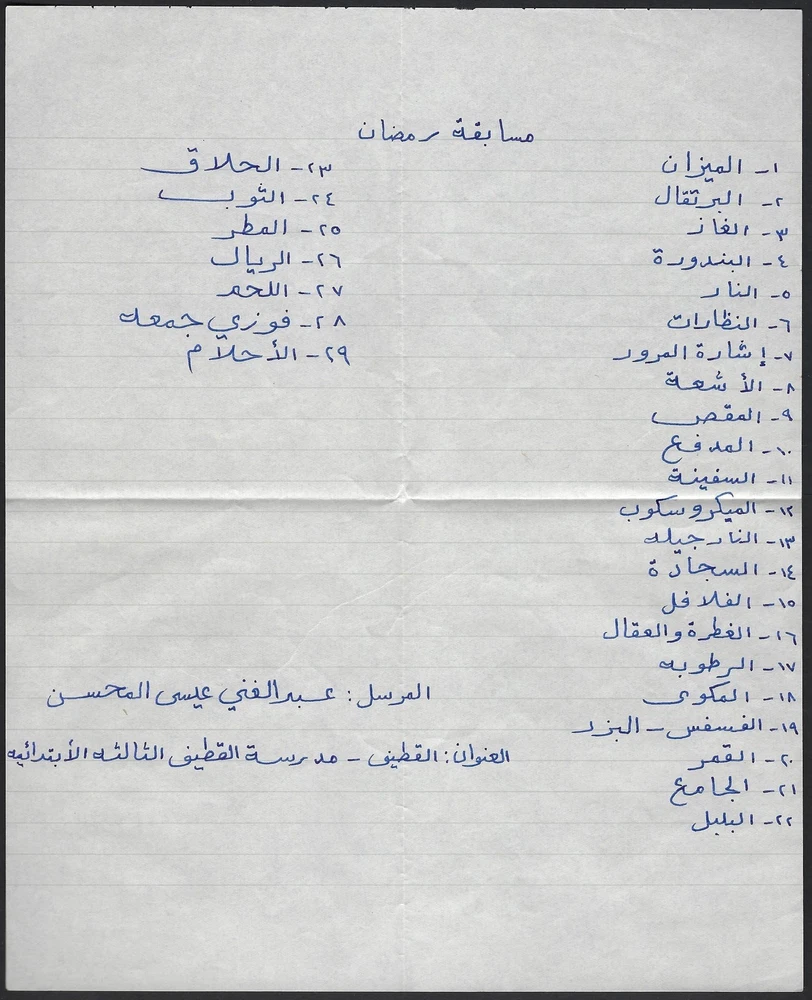 مسابقة رمضان
١- الميزان
٢- البرتقال
٣- الغاز
٤- البندورة
٥- النار
٦- النظارات
٧- إشارة المرور
٨- الأشعة
٩- المقص
١٠- المدفع
١١- السفينة
١٢- الميكروسكوب
١٣- النارجيله
١٤- السجادة
١٥- الفلافل
١٦- الغطرة والعقال
١٧- الرطوبه
١٨- المكوى
١٩- الفسفس - البزر
٢٠- القمر
٢١- الجامع
٢٢- البلبل
٢٣- الحلاق
٢٤- الثوب
٢٥- المطر
٢٦- الريال
٢٧- اللحم
٢٨- فوزي جمعه
٢٩- الأحلام
المرسل: عبدالغني عيسى المحسن
العنوان: القطيف - مدرسة القطيف الثالثه الأبتدائيه